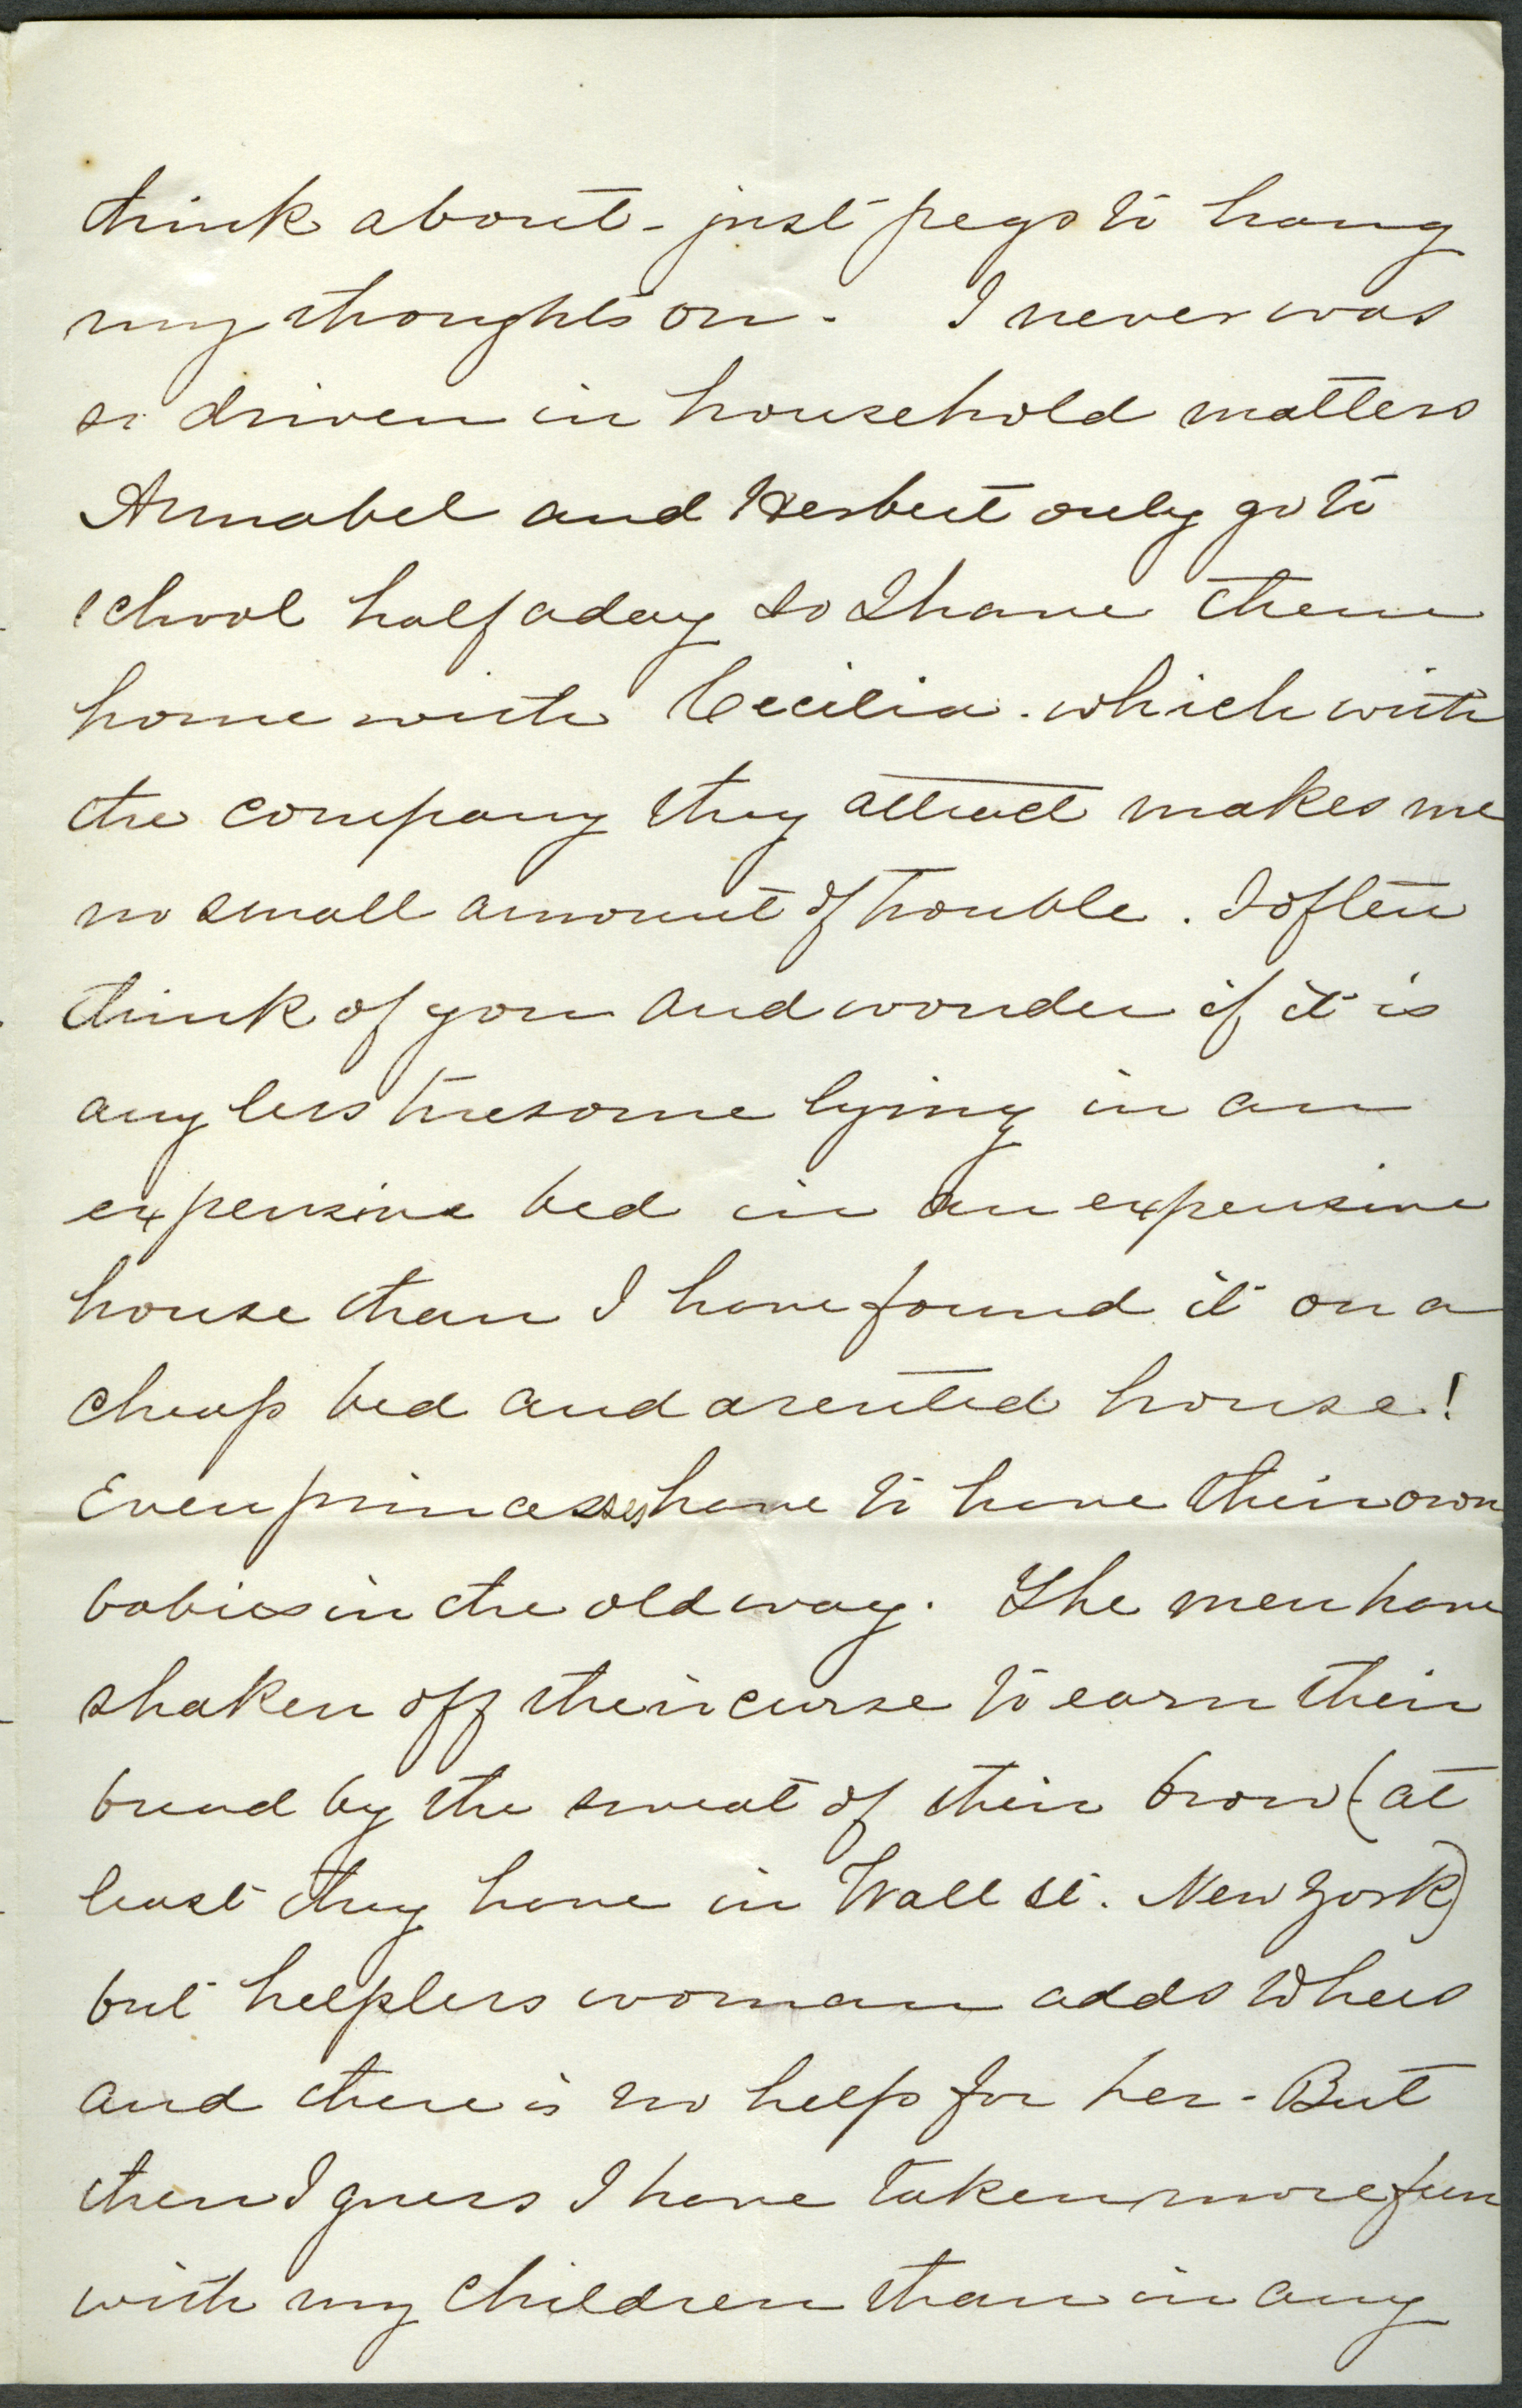 think about - just pegs to hang
my thoughts on - I never was
so driven in household matters
Annabel and Herbert only go to
school half a day so I have them
home with Cecilia. which with
the company they attract makes me
no small amount of trouble. I often
think of you and wonder if it is
any less tiresome lying in an
expensive bed in an expensive
house than I have found it on a
cheap bed and a rented house!
Even princesses have to have their own
babies in the old way. The men have
shaken off their curse to earn their
bread by the sweat of their brow (at
least they have in Wall st. New York)
but helpless woman adds to hers
and there is no help for her - But
then I guess I have taken more fun
with my children than in any